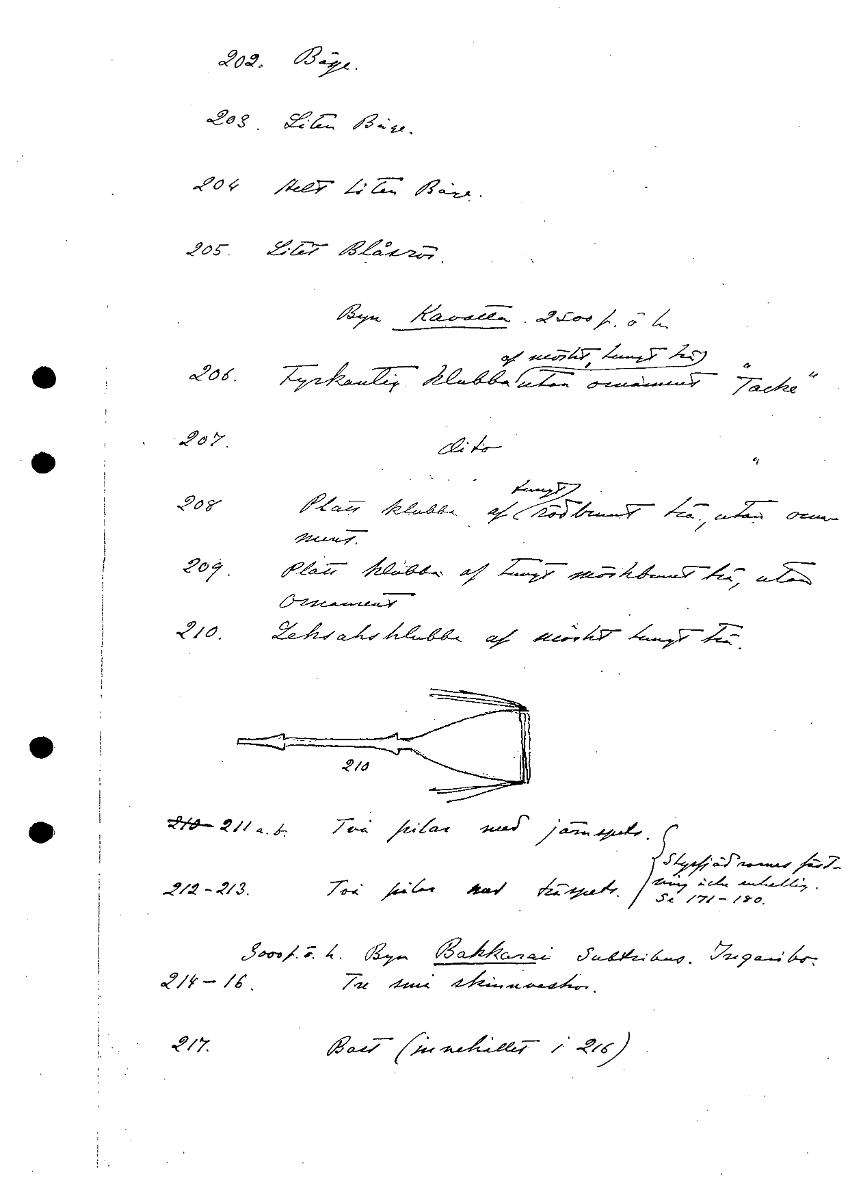 202. Båge.
203. Liten Båge.
204 Helt Liten Båge.
205. Litet Blåsrör.
Byn Kavatta. 2500 f. ö h.
af mörkt, tungt trä
206. Fyrkantig klubba utan ornament "Tacke"
207. dito "
tungt
208 Platt klubba af rödbrunt trä, utan orna-
ment.
209. Platt klubba af tungt mörkbrunt trä, utan
ornament
210. Leksaksklubba af mörkt tungt trä.
210
210 - 211 a. b. Två pilar med järnspets.
Styrfjädrarnes fäst-
212-213. Två pilar med träspets.
ning icke enhetlig.
Se 171-180.
3000 f. ö. h. Byn Bakkarai Subtribus.
214-16. Tre små skinnväskor.
217. Bast (innehållet i 216)